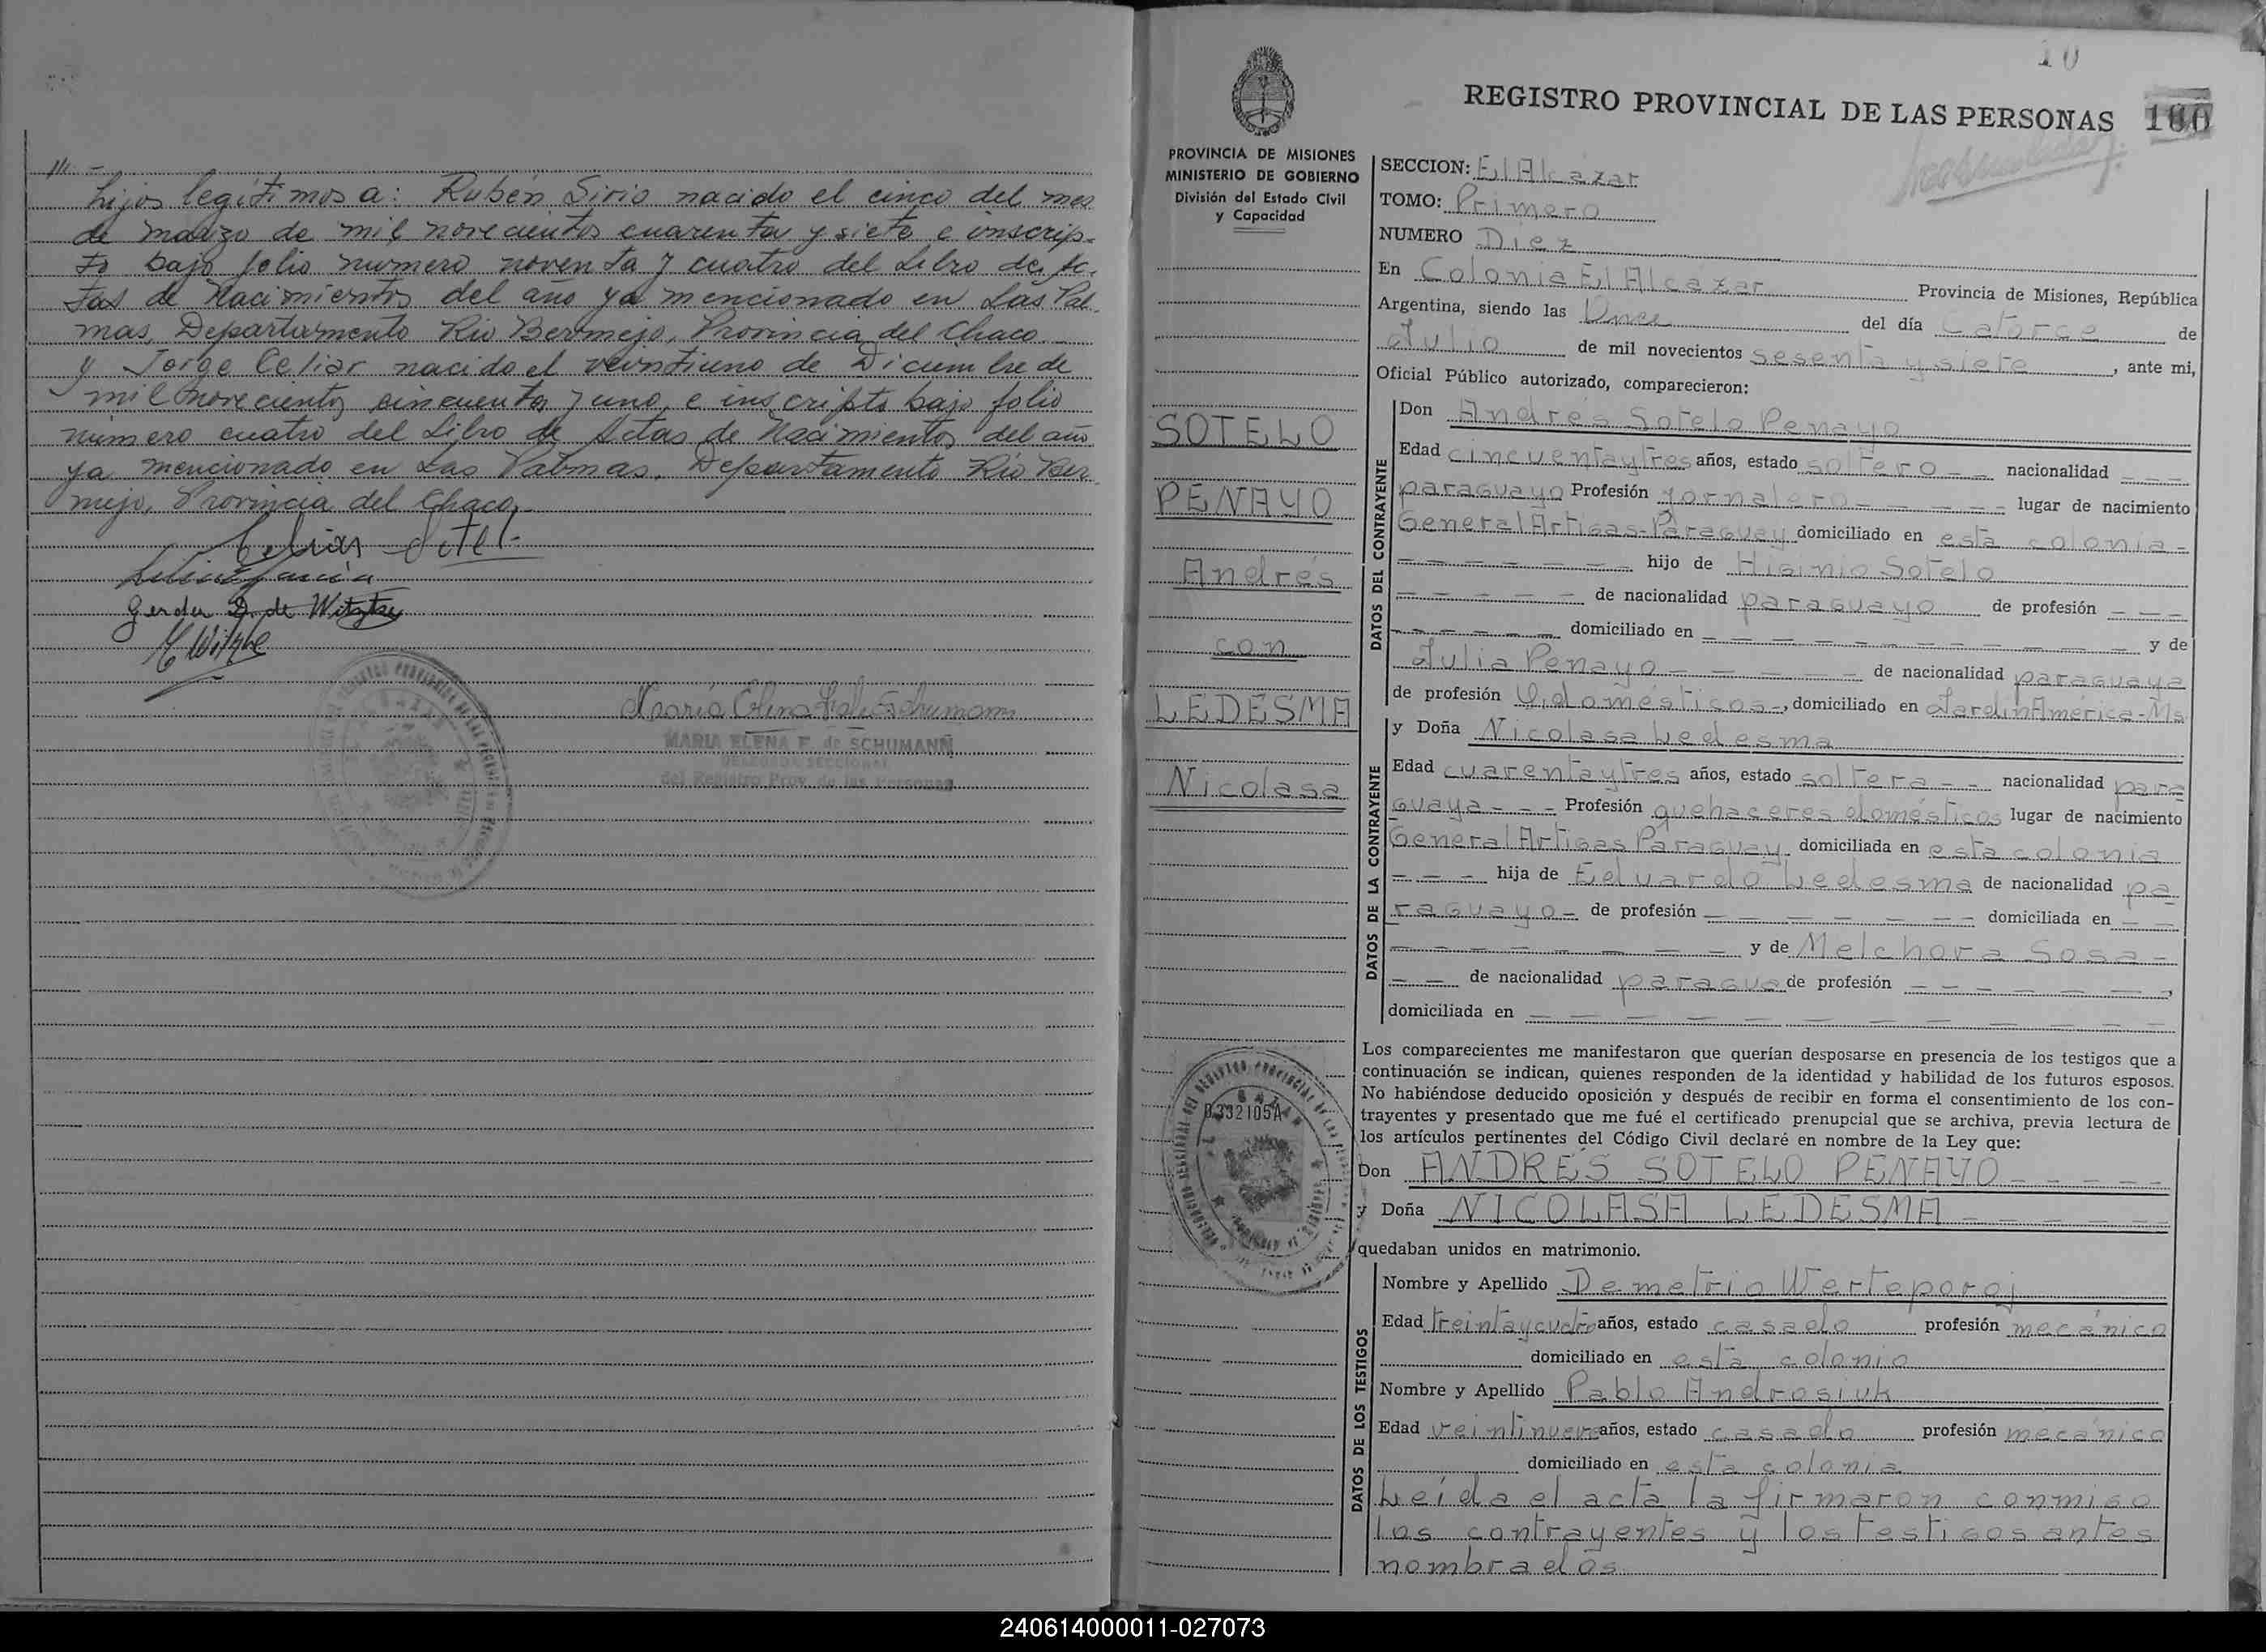 hijos legítimos a: Rubén Sirio nacido el cinco del mes
de marzo de mil novecientos cuarenta y siete e inscrip-
to bajo folio numero noventa y cuatro del Libro de Ac-
tas de Nacimientos del año ya mencionado en Las Pal-
mas, Departamento Rio Bermejo, Provincia del Chaco
y Jorge Celiar nacido el veintiuno de Diciembre de
mil novecientos cincuenta y uno, e inscripto bajo folio
número cuatro del Libro de Actas de Nacimientos del año
ya mencionado en Las Palmas, Departamento Rio Ber-
mejo, Provincia del Chaco,
Gerda D. de Witzke
MARIA ELENA F. de SCHUMANN
DELEGADA SECCIONAL
del Registro Prov. de las Personas
10
REGISTRO PROVINCIAL DE LAS PERSONAS 100
PROVINCIA DE MISIONES
MINISTERIO DE GOBIERNO
División del Estado Civil
y Capacidad
SOTELO
PENAYO
Andrés
con
LEDESMA
Nicolasa
0332105A
SECCION: El Alcazar
TOMO: Primero
NUMERO Diez
En Colonia El Alcazar Provincia de Misiones, República
Argentina, siendo las Once del día Catorce de
Julio de mil novecientos sesenta y siete, ante mi,
Oficial Público autorizado, comparecieron:
DATOS DEL CONTRAYENTE
Don Andrés Sotelo Penayo
Edad cincuentaytres años, estado soltero - - nacionalidad - - -
paraguayo Profesión jornalero - - - - - - lugar de nacimiento
General Artigas-Paraguay domiciliado en esta colonia -
- - - - - - - hijo de Higinio Sotelo
- - - - - de nacionalidad paraguayo de profesión - - -
- - - - - domiciliado en - - - - - - - - - - y de
Julia Penayo - - - - - de nacionalidad paraguaya
de profesión Q. domésticos -, domiciliado en Jardin América - Ms
DATOS DE LA CONTRAYENTE
y Doña Nicolasa Ledesma
Edad cuarentaytres años, estado soltera - - nacionalidad para
guaya - - - Profesión quehaceres domésticos lugar de nacimiento
General Artigas Paraguay domiciliada en esta colonia
- - - hija de Eduardo Ledesma de nacionalidad pa
raguayo - de profesión - - - - - - domiciliada en - -
- - - - - - - - y de Melchora Sosa -
- - de nacionalidad paragua de profesión - - - - - -,
domiciliada en - - - - - - - - - - - -
Los comparecientes me manifestaron que querían desposarse en presencia de los testigos que a
continuación se indican, quienes responden de la identidad y habilidad de los futuros esposos.
No habiéndose deducido oposición y después de recibir en forma el consentimiento de los con-
trayentes y presentado que me fué el certificado prenupcial que se archiva, previa lectura de
los artículos pertinentes del Código Civil declaré en nombre de la Ley que:
Don ANDRÉS SOTELO PENAYO - - - - -
y Doña NICOLASA LEDESMA - - - - -
quedaban unidos en matrimonio.
DATOS DE LOS TESTIGOS
Nombre y Apellido Demetrio Werteporoj
Edad treintaycuatro años, estado casado profesión mecánico
domiciliado en esta colonia
Nombre y Apellido Pablo Androsiuk
Edad veintinueve años, estado casado profesión mecánico
domiciliado en esta colonia
Leída el acta la firmaron conmigo
los contrayentes y los testigos antes
nombrados.
240614000011-027073